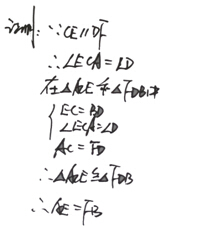 证明:∵CE∥DF
∴∠ECA=∠D
在△ACE和△FDB中
EC=BD
∠ECA=∠D
AC=FD
∴△ACE≌△FDB
∴AE=FB